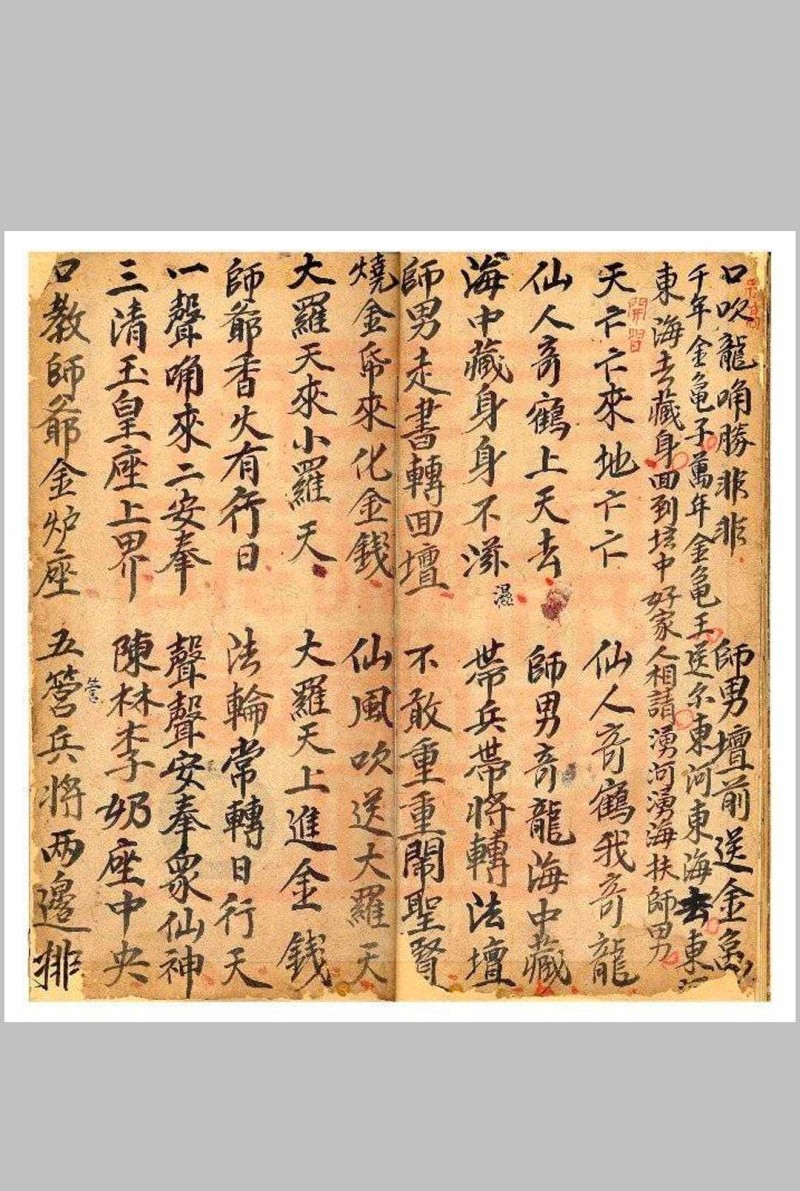 口吹龍喃勝非非 師男壇前送金龜
千年金龜子萬年金龜王送尔東河東海去東
東海去藏身面到壇中好家人相請湧河湧海扶師男
開習
天亡亡來地亡亡 仙人奇鶴我奇龍
仙人奇鶴上天去 師男奇龍海中藏
海中藏身身不滋 帶兵帶將轉法壇
濕
師男走書轉回壇 不敢重重鬧聖賢
燒金帋來化金錢 仙風吹送大羅天
大羅天來小羅天 大羅天上進金錢
師爺香火有行日 法輪常轉日行天
一聲喃來二安奉 聲聲安奉眾仙神
三清玉皇座上界 陳林李奶座中央
口教師爺金炉座 五營兵將兩邊排
營